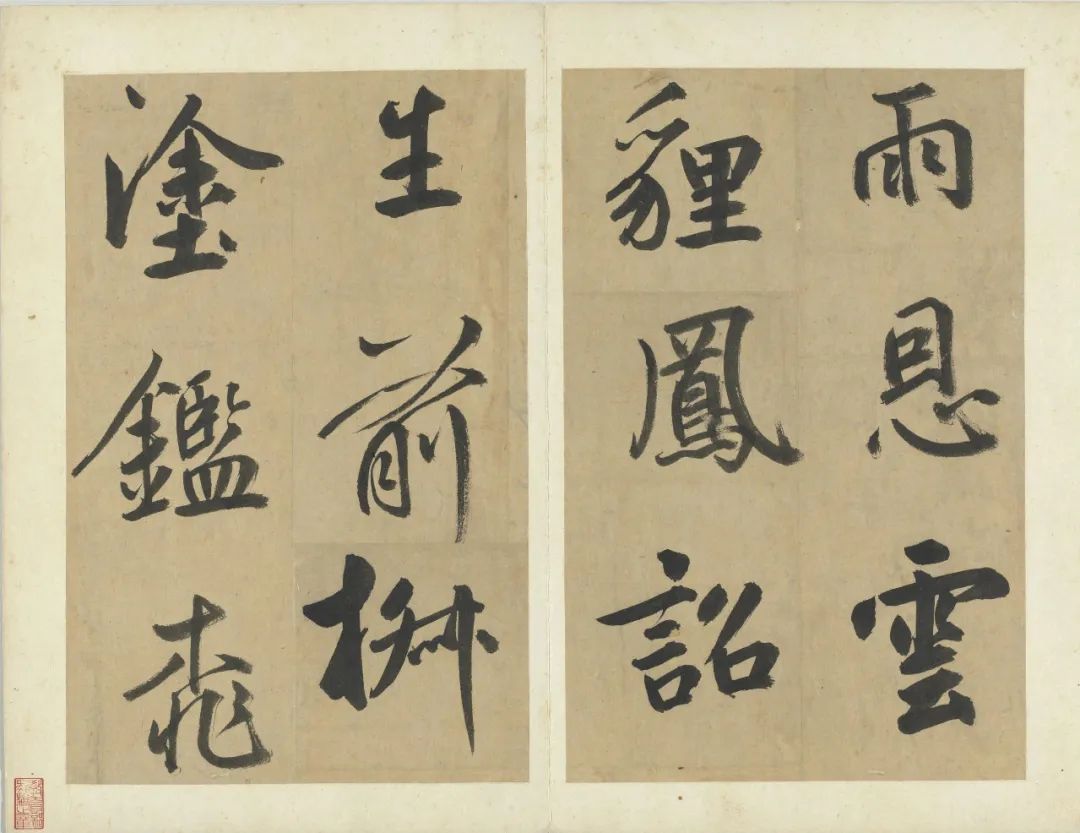 雨恩雲
貍鳳詔
生前
塗鑑